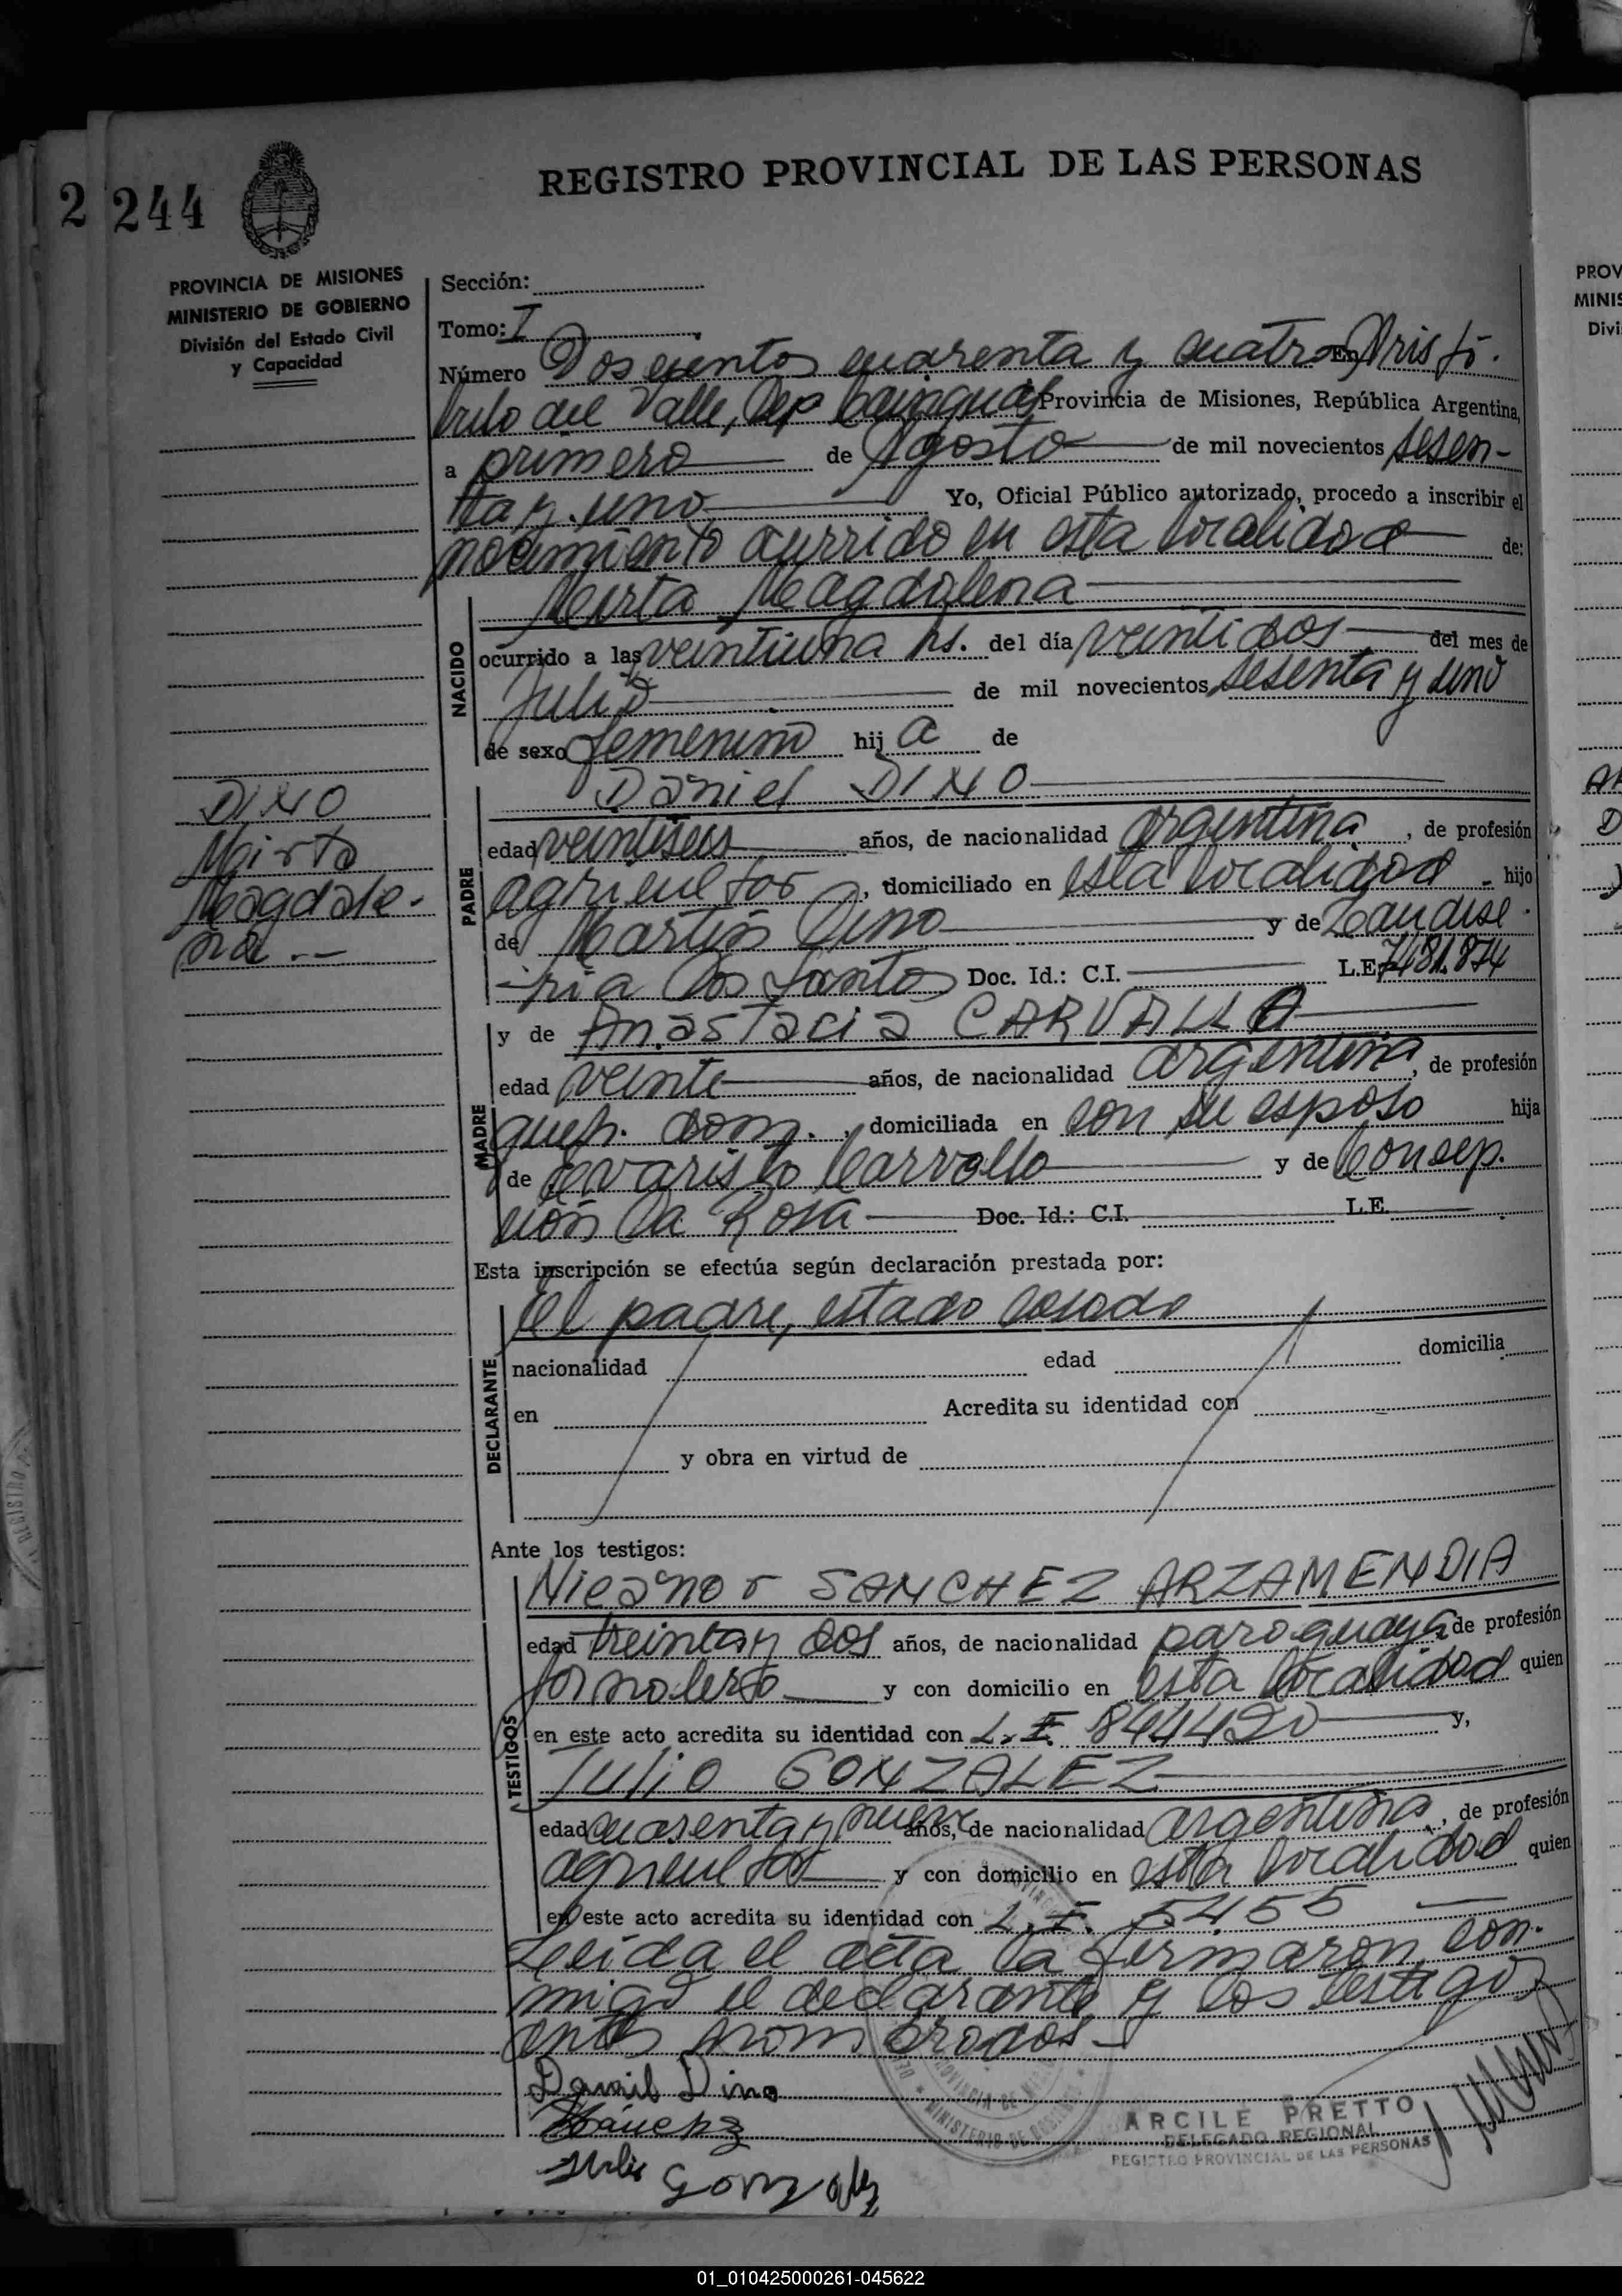 REGISTRO PROVINCIAL DE LAS PERSONAS
2 244
PROVINCIA DE MISIONES
MINISTERIO DE GOBIERNO
División del Estado Civil
y Capacidad
Sección:
Tomo: I
Número Doscientos cuarenta y cuatro En Aristó-
bulo del Valle, Dep Cainguás Provincia de Misiones, República Argentina,
a primero de Agosto de mil novecientos sesen-
ta y uno Yo, Oficial Público autorizado, procedo a inscribir el
nacimiento ocurrido en esta localidad de:
Mirta Magdalena
NACIDO
ocurrido a las veintiuna hs. del día veintidos del mes de
Julio de mil novecientos sesenta y uno
de sexo femenino hija de
DINO
Mirta
Magdale-
na.--
PADRE
Daniel DINO
edad veintiseis años, de nacionalidad argentina, de profesión
agricultor, domiciliado en esta localidad hijo
de Martín Dino y de
ria Dos Santos Doc. Id.: C.I. L.E. 7481.874
MADRE
y de Anastacia CARVALLO
edad veinte años, de nacionalidad argentina, de profesión
queh. dom., domiciliada en con su esposo hija
de Evaristo Carvallo y de Consep-
ción Da Rosa Doc. Id.: C.I. L.E.
Esta inscripción se efectúa según declaración prestada por:
DECLARANTE
El padre, estado casado
nacionalidad edad domicilia
en Acredita su identidad con
y obra en virtud de
Ante los testigos:
TESTIGOS
Nicanor SANCHEZ ARZAMENDIA
edad treinta y dos años, de nacionalidad paraguaya de profesión
jornalero y con domicilio en esta localidad quien
en este acto acredita su identidad con L.E. 844420 y,
Julio GONZALEZ
edad cuarenta y nueve años, de nacionalidad argentina, de profesión
agricultor y con domicilio en esta localidad quien
en este acto acredita su identidad con L.E. 5455
Leida el acta la firmaron con-
migo el declarante y los testigos
antes nombrados-
Daniel Dino
Sánchez
Julio Gonzalez
ARCILE PRETTO
DELEGADO REGIONAL
REGISTRO PROVINCIAL DE LAS PERSONAS
PROV
MINIS
Divi
01_010425000261-045622